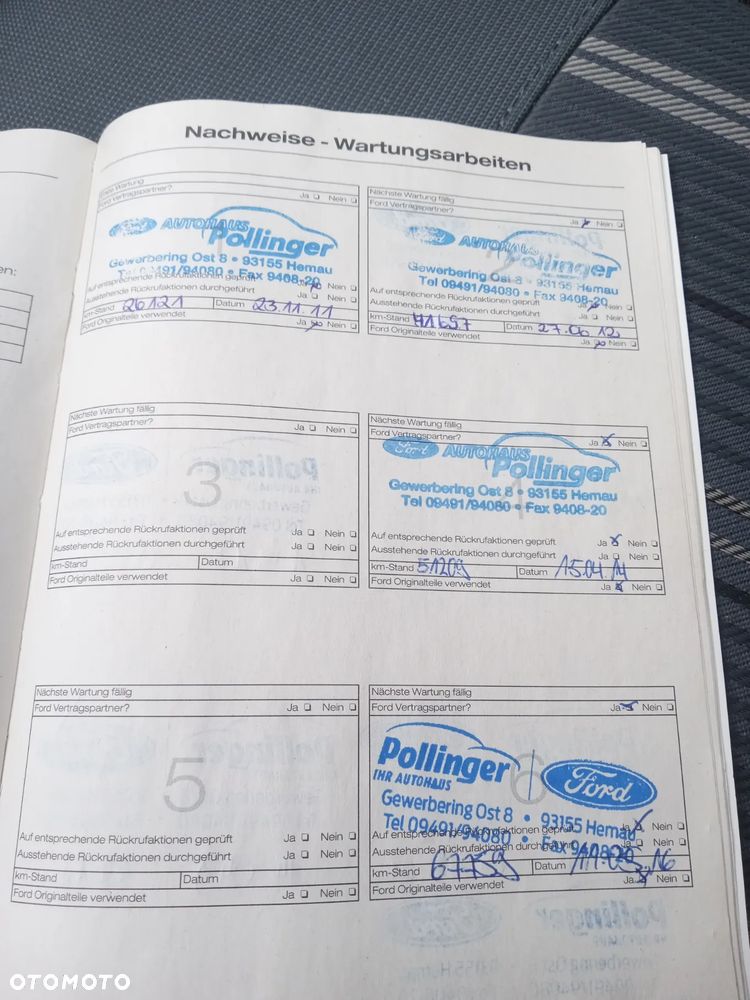 Nachweise - Wartungsarbeiten
en:
Erste Wartung
Ford Vertragspartner? Ja Nein
Ford AUTOHAUS
Pollinger
Gewerbering Ost 8 • 93155 Hemau
Tel 09491/94080 • Fax 9408-20
Auf entsprechende Rückrufaktionen geprüft Ja Nein
Ausstehende Rückrufaktionen durchgeführt Ja Nein
km-Stand 26121 Datum 23.11.11
Ford Originalteile verwendet Ja Nein
Nächste Wartung fällig
Ford Vertragspartner? Ja Nein
Ford AUTOHAUS
Pollinger
Gewerbering Ost 8 • 93155 Hemau
Tel 09491/94080 • Fax 9408-20
Auf entsprechende Rückrufaktionen geprüft Ja Nein
Ausstehende Rückrufaktionen durchgeführt Ja Nein
km-Stand 41657 Datum 27.06.12
Ford Originalteile verwendet Ja Nein
Nächste Wartung fällig
Ford Vertragspartner? Ja Nein
3
Auf entsprechende Rückrufaktionen geprüft Ja Nein
Ausstehende Rückrufaktionen durchgeführt Ja Nein
km-Stand Datum
Ford Originalteile verwendet Ja Nein
Nächste Wartung fällig
Ford Vertragspartner? Ja Nein
Ford AUTOHAUS
Pollinger
Gewerbering Ost 8 • 93155 Hemau
Tel 09491/94080 • Fax 9408-20
Auf entsprechende Rückrufaktionen geprüft Ja Nein
Ausstehende Rückrufaktionen durchgeführt Ja Nein
km-Stand 51209 Datum 15.04.14
Ford Originalteile verwendet Ja Nein
Nächste Wartung fällig
Ford Vertragspartner? Ja Nein
5
Auf entsprechende Rückrufaktionen geprüft Ja Nein
Ausstehende Rückrufaktionen durchgeführt Ja Nein
km-Stand Datum
Ford Originalteile verwendet Ja Nein
Nächste Wartung fällig
Ford Vertragspartner? Ja Nein
6
Pollinger
IHR AUTOHAUS
Ford
Gewerbering Ost 8 • 93155 Hemau
Tel 09491/94080 • Fax 9408-20
Auf entsprechende Rückrufaktionen geprüft Ja Nein
Ausstehende Rückrufaktionen durchgeführt Nein
km-Stand 67759 Datum
Ford Originalteile verwendet Ja Nein
OTOMOTO